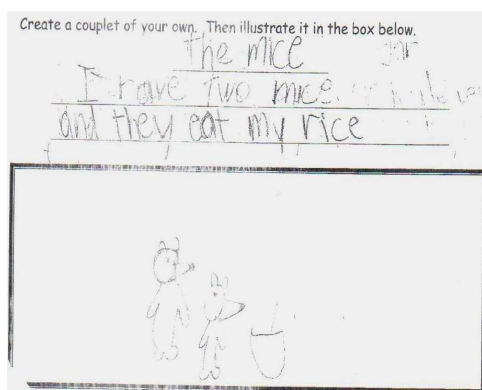 Create a couplet of your own. Then illustrate it in the box below.
the mice
I rave two mice
and they eat my rice